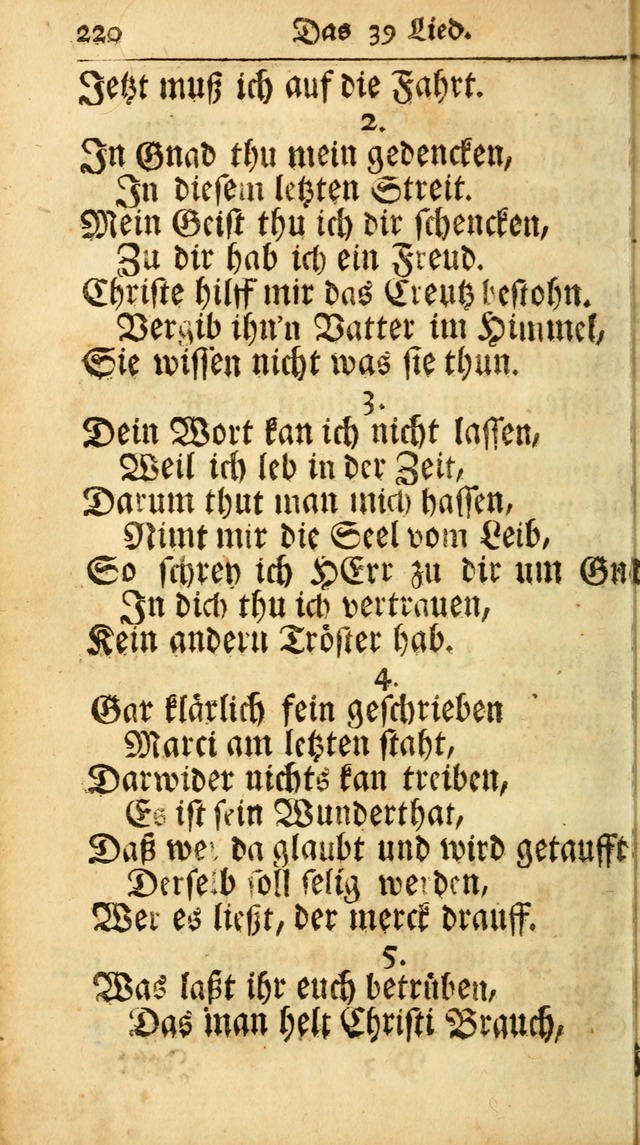 220 Das 39 Lied.
Jetzt muß ich auf die Fahrt.
2.
In Gnad thu mein gedencken,
In diesem letzten Streit.
Mein Geist thu ich dir schencken,
Zu dir hab ich ein Freud.
Christe hilff mir das Creutz bestohn.
Vergib ihn'n Vatter im Himmel,
Sie wissen nicht was sie thun.
3.
Dein Wort kan ich nicht lassen,
Weil ich leb in der Zeit,
Darum thut man mich hassen,
Nimt mir die Seel vom Leib,
So schrey ich HErr zu dir um
In dich thu ich vertrauen,
Kein andern Tröster hab.
4.
Gar klärlich fein geschrieben
Marci am letzten staht,
Darwider nichts kan treiben,
Es ist sein Wunderthat,
Daß wer da glaubt und wird getaufft
Derselb soll selig werden,
Wer es ließt, der merck drauff.
5.
Was laßt ihr euch betrüben,
Das man helt Christi Brauch,